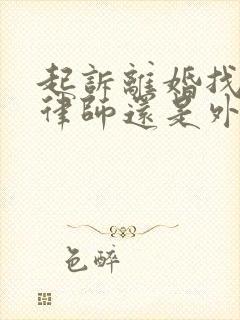 起訴離婚找
律師還是外
色醉